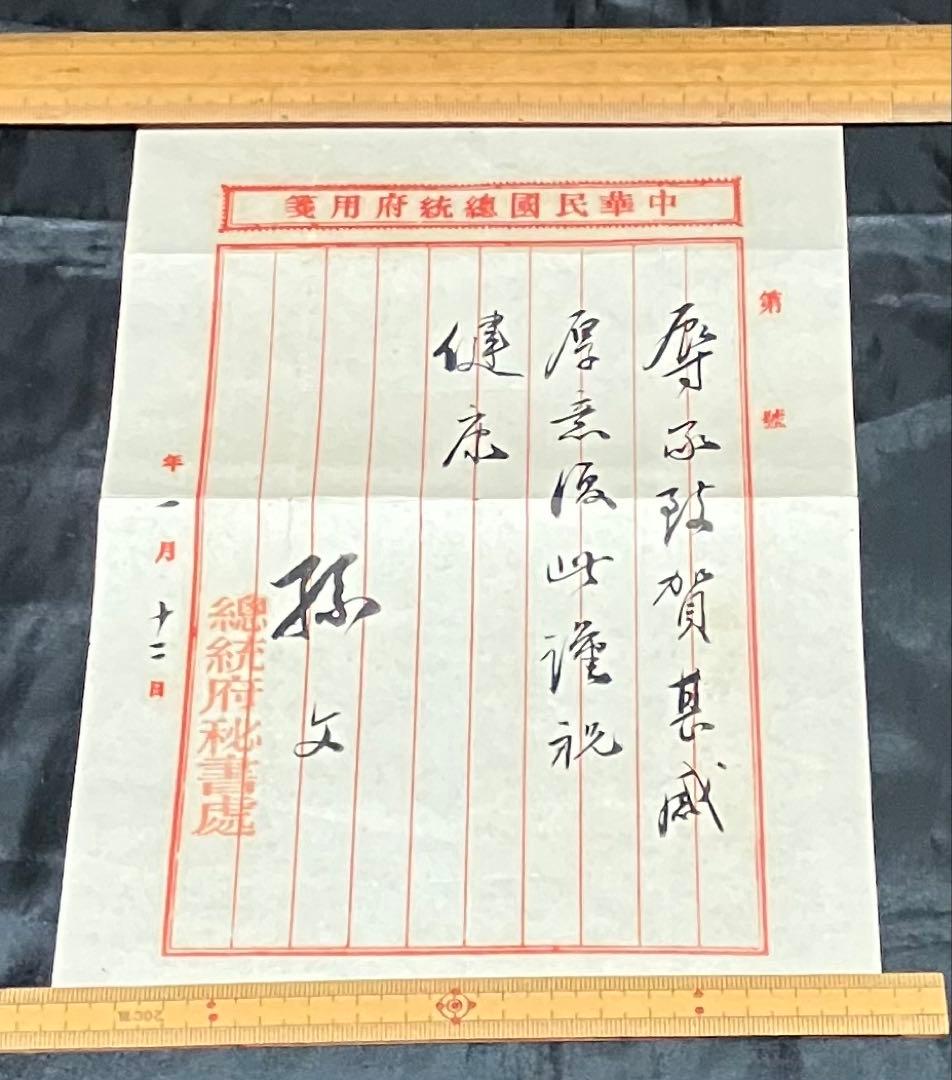 中華民國總統府用箋
第 號
辱承致賀甚感
厚意復此謹祝
健康
孫文
總統府秘書處
年一月十二日
20℃